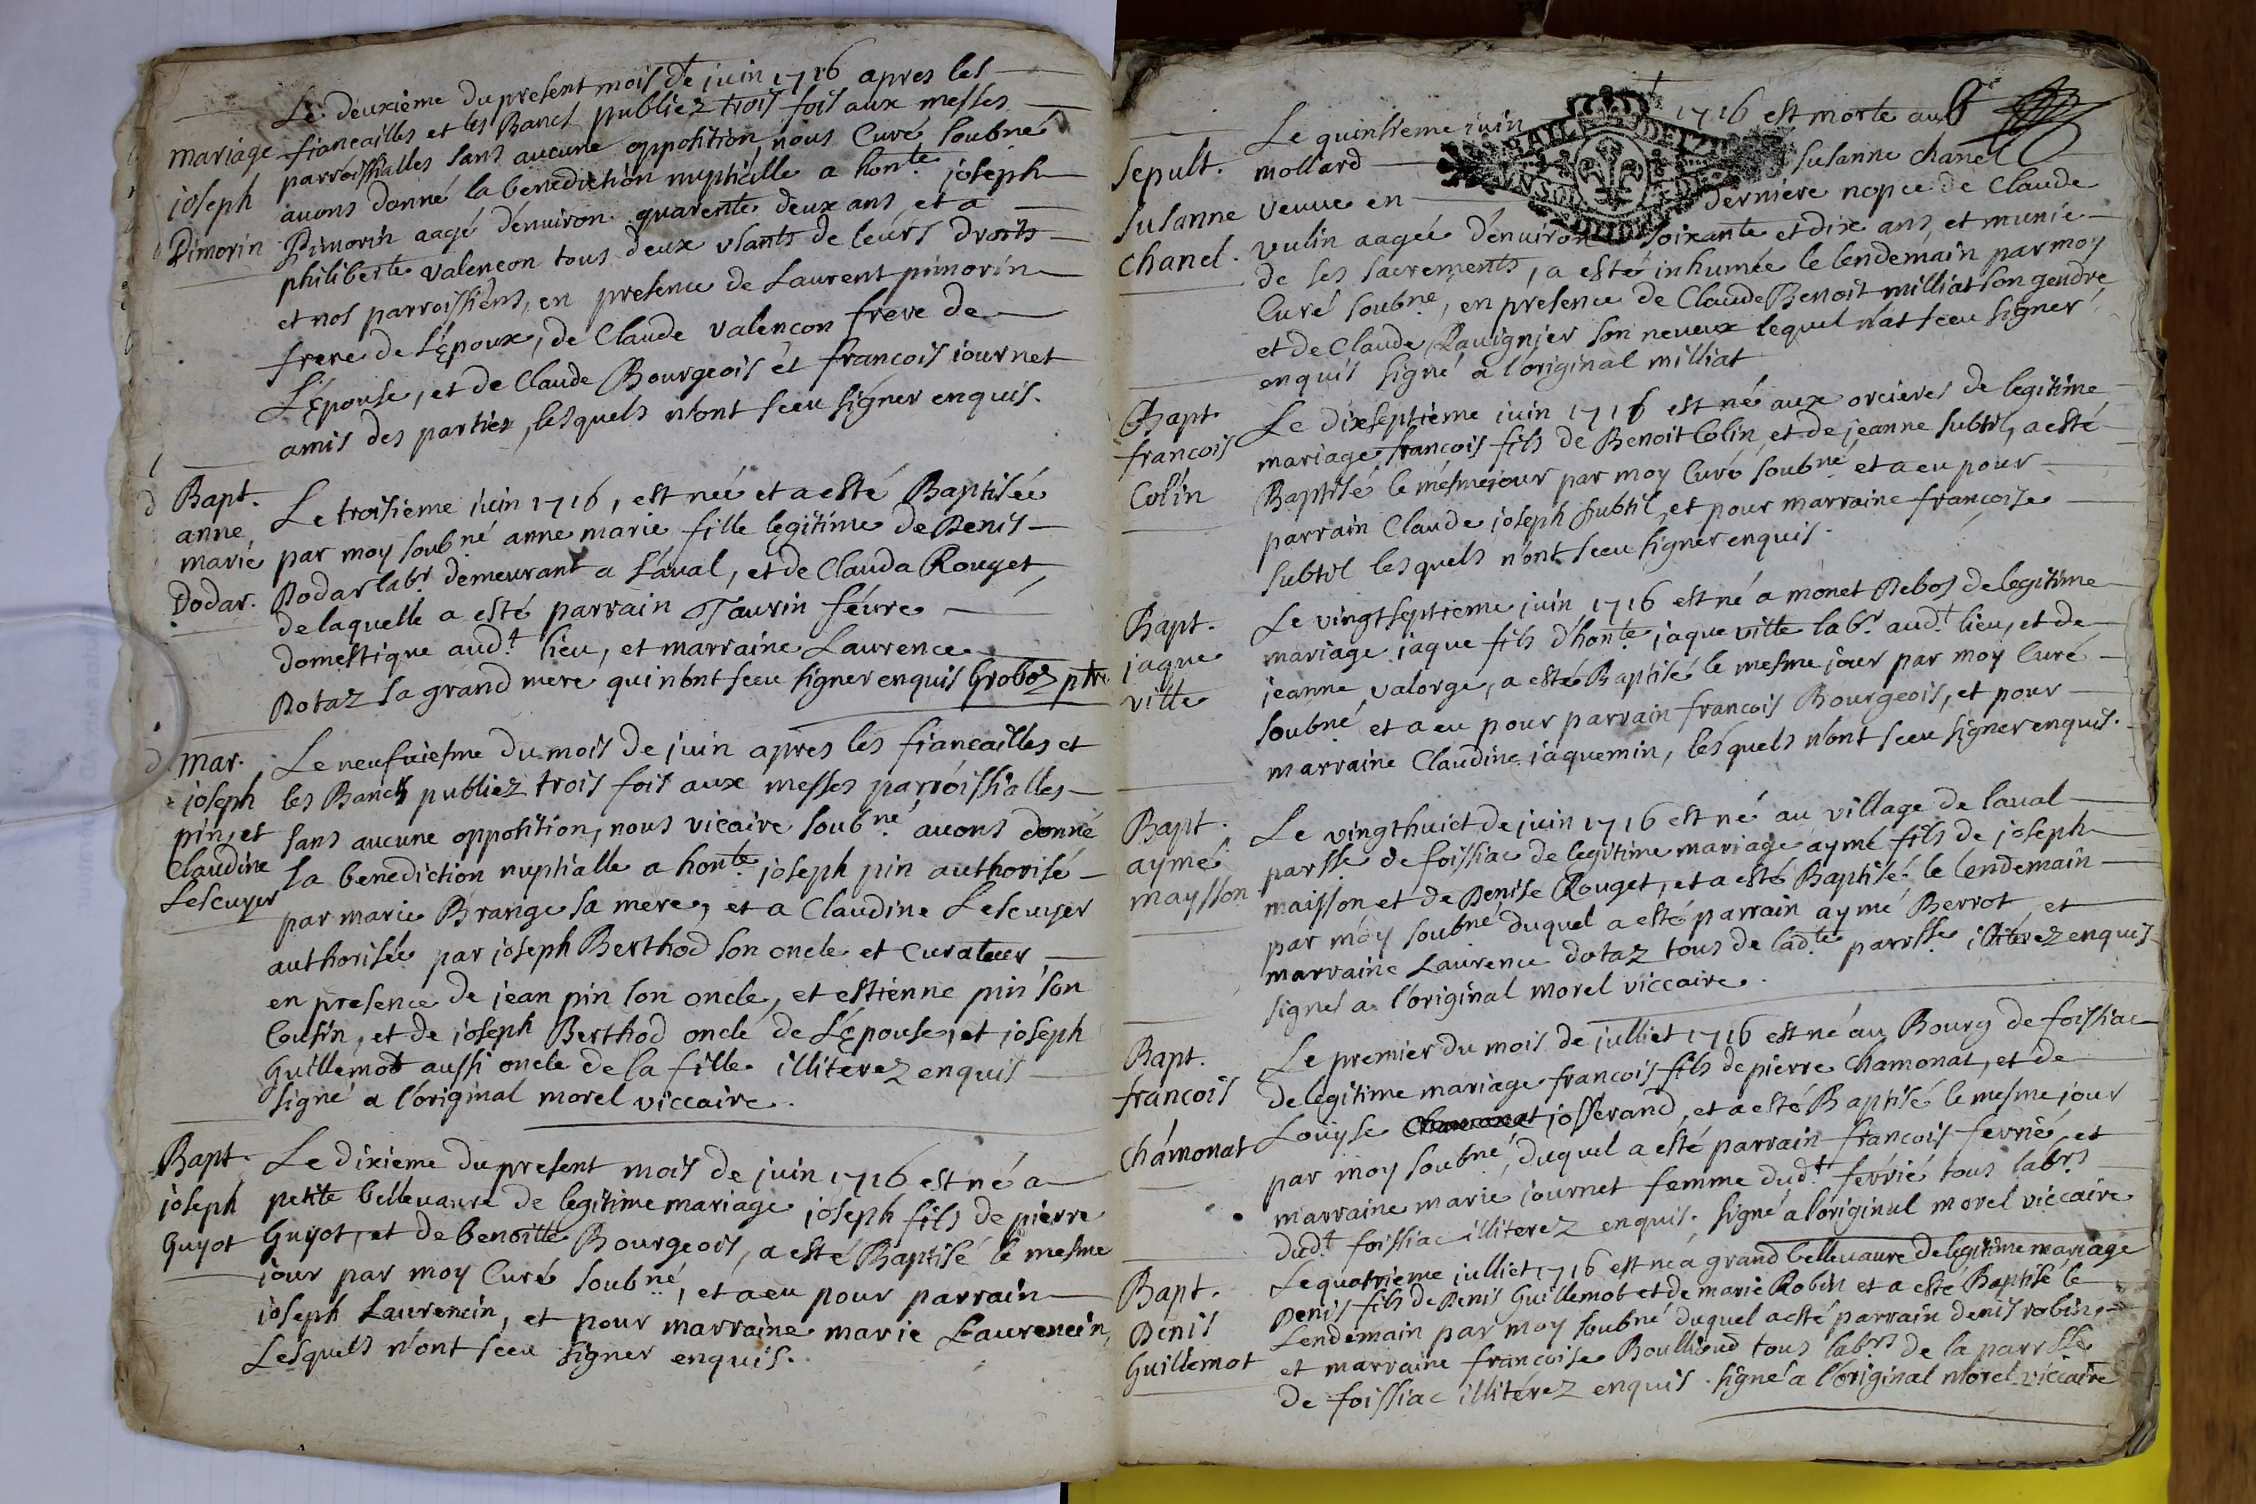 Le deuxième du present mois de juin 1716 apres les
mariage fiancailles et les Bancs publiez trois fois aux messes
joseph parroissialles sans aucune opposition, nous Curé soubné
Pimorin avons donné la benediction nuptialle a honte joseph
Pimorin aagé d'environ quarente deux ans, et a
philiberte valençon tous deux usants de leurs droits
et nos parroissiens, en presence de Laurent pimorin
frere de l'Epoux, de Claude valençon frere de
l'Epouse, et de Claude Bourgeois et francois journet
amis des parties, lesquels n'ont sceu signer enquis.
Bapt. Le troisieme juin 1716, est née et a esté Baptisée
anne par moy soubné anne marie fille legitime de Denis
marie Dodar labr demeurant a l'aval, et de Clauda Rouget
Dodar. de laquelle a esté parrain Taurin févre
domestique audt lieu, et marraine Laurence
Dotaz sa grand mere qui n'ont sceu signer enquis Groboz ptre
mar. Le neufviesme du mois de juin apres les fiancailles et
joseph les Bancs publiez trois fois aux messes parroissialles
pin, et sans aucune opposition, nous vicaire soubné avons donné
Claudine la benediction nuptialle a honte joseph pin authorisé
Lescuyer par marie Brange sa mere, et a Claudine Lescuyer
authorisée par joseph Berthod son oncle et Curateur,
en presence de jean pin son oncle, et estienne pin son
Cousin, et de joseph Berthod oncle de l'Epouse, et joseph
Guillemot aussi oncle de la fille illiterez enquis
signé a l'original morel viccaire.
Bapt. Le dixieme du present mois de juin 1716 est né a
joseph petite bellevavre de legitime mariage joseph fils de pierre
Guyot Guyot, et de benoitte Bourgeois, a esté Baptisé le mesme
jour par moy Curé soubné, et a eu pour parrain
joseph Laurencin, et pour marraine marie Laurencin,
Lesquels n'ont sceu signer enquis.
Le quinsieme juin 1716 est morte au
Sepult. mollard susanne chanel
susanne veuve en derniere nopce de Claude
chanel. vulin aagée d'environ soixante et dix ans, et munie
de ses sacrements, a esté inhumée le lendemain par moy
Curé soubné, en presence de Claude Benoit milliat son gendre
et de Claude Ravignier son neveux lequel n'at sceu signer
enquis signé a l'original milliat
Bapt. Le dixseptieme juin 1716 est né aux orcieres de legitime
francois mariage francois fils de Benoit Colin, et de jeanne subtil, a esté
Colin Baptisé le mesme jour par moy Curé soubné et a eu pour
parrain Claude joseph subtil, et pour marraine francoise
subtil lesquels n'ont sceu signer enquis.
Bapt. Le vingtseptieme juin 1716 est né a monet Debos de legitime
jaque mariage jaque fils d'honte jaque ville labr audt lieu, et de
ville jeanne valorge, a esté Baptisé le mesme jour par moy Curé
soubné et a eu pour parrain francois Bourgeois, et pour
marraine Claudine jaquemin, lesquels n'ont sceu signer enquis.
Bapt. Le vingthuict de juin 1716 est né au village de laval
aymé parsse de foissiac de legitime mariage aymé fils de joseph
maysson maisson et de Denise Rouget, et a esté Baptisé le lendemain
par moy soubné duquel a esté parrain aymé Berrot, et
marraine Laurence dotaz tous de ladte parrsse illiterez enquis
signes a l'original morel viccaire.
Bapt. Le premier du mois de julliet 1716 est né au Bourg de foissiac
francois de legitime mariage francois fils de pierre Chamonat, et de
Chamonat Loüyse Chamonat josserand, et a esté Baptisé le mesme jour
par moy soubné, duquel a esté parrain francois fevrié, et
marraine marie journet femme dudt fevrié tous labrs
dudt foissiac illiterez enquis. signé a l'original morel viccaire
Bapt. Le quatrieme julliet 1716 est né a grand bellevavre de legitime mariage
Denis Denis fils de Denis Guillemot et de marie Robin et a esté Baptisé le
Guillemot Lendemain par moy soubné duquel a esté parrain denis robin,
et marraine francoise Boullioud tous labrs de la parrsse
de foissiac illitérez enquis. signé a l'original Morel viccaire